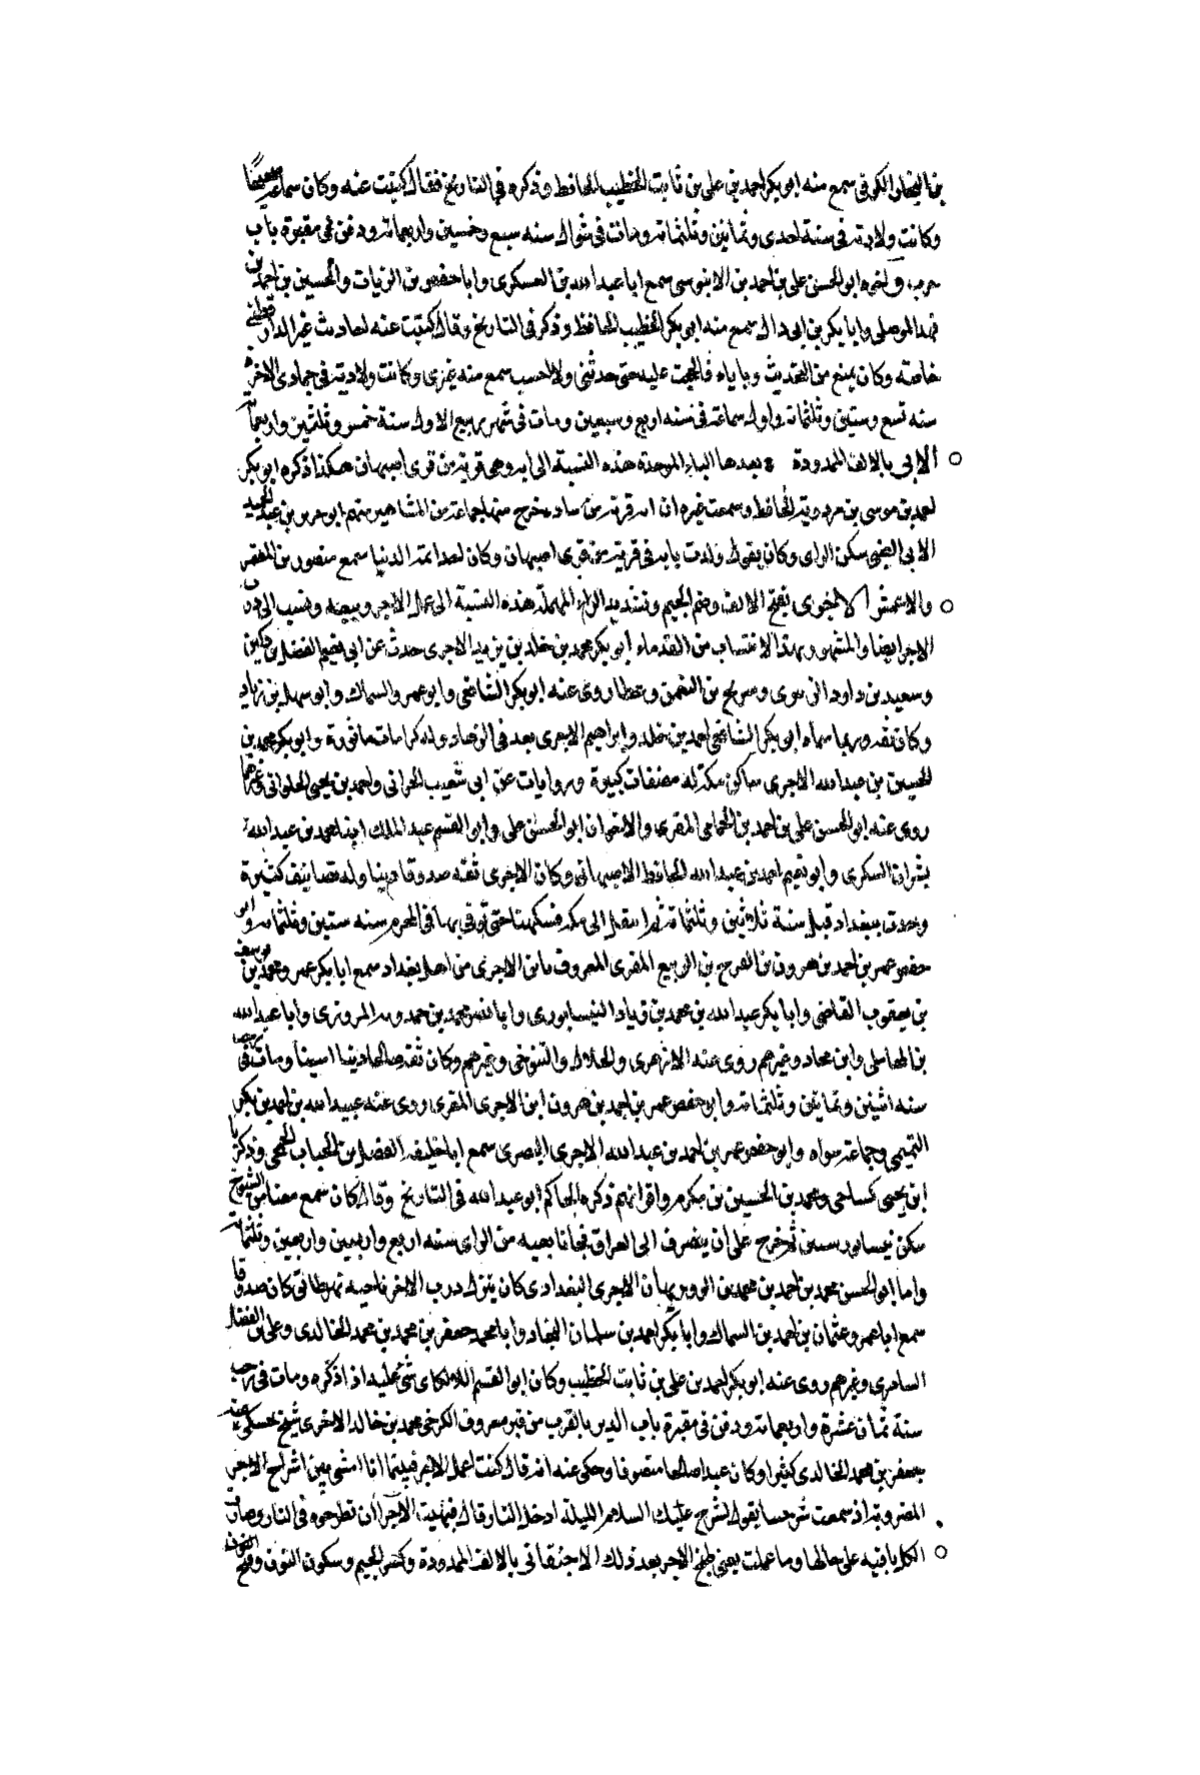 بن النجار الكوفى سمع منه ابو بكر احمد بن على بن ثابت الخطيب الحافظ وذكره فى التاريخ فقال كتبت عنه وكان سماعه صحيحا
وكانت ولادته فى سنة احدى وثمانين وثلثمائة ومات فى شوال سنه سبع وخمسين واربعمائة ودفن فى مقبرة باب
حرب واخوه ابو الحسن على بن احمد بن الابنوسى سمع ابا عبد الله بن العسكرى وابا حفص بن الزيات والحسين بن احمد بن
فهد الموصلى وابا بكر بن سمع منه ابو بكر الخطيب الحافظ وذكره فى التاريخ وقال كتبت عنه احاديث غير الدارقطنى
خاصة وكان يمنع من التحديث وياباه فالححت عليه حتى حدثنى ولا احسب سمع منه غيرى وكانت ولادته فى جمادى الاخرة
سنه تسع وستين وثلثمائة واول سماعه فى سنه اربع وسبعين ومات فى شهر ربيع الاول سنة خمس وثلثين واربعمائة
الابى بالالف الممدودة بعدها الباء الموحدة هذه النسبة الى ابه وهى قرية من قرى اصبهان هكذا ذكره ابو بكر
احمد بن موسى بن مردويه الحافظ وسمعت غيره ان ابه قرية من ساوه خرج منها جماعة من المشاهير منهم ابو جرير بن عبد الحميد
الابى الضبى سكن الراى وكان يقول ولدت بابه فى قرية من قرى اصبهان وكان احد ائمة الدنيا سمع منصور بن المعتمر
والاعمش الاجرى بفتح الالف وضم الجيم وتشديد الراء المهملة هذه النسبة الى عمل الاجر وبيعه ونسب الى درب
الاجر ايضا والمشهور بهذا الانتساب من القدماء ابو بكر محمد بن خلد بن يزيد الاجرى حدث عن ابى نعيم الفضل بن دكين
وسعيد بن داود الزنبرى وسريج بن النعمن روى عنه ابو بكر الشافعى وابو عمرو السماك وابو سهل بن زياد
وكان ثقه وربما سماه ابو بكر الشافعى احمد بن خلد وابراهيم الاجرى يعد فى الزهاد وله كرامات ماثورة وابو بكر محمد بن
الحسين بن عبد الله الاجرى ساكن مكة له مصنفات كبيرة وروايات عن ابى شعيب الحرانى واحمد بن يحيى الحلوانى وغيرهما
روى عنه ابو الحسن على بن احمد بن الحمامى المقرى والاخوان ابو الحسن على وابو القسم عبد الملك ابنا محمد بن عبد الله
بشران السكرى وابو نعيم احمد بن عبد الله الحافظ الاصبهانى وكان الاجرى ثقه صدوقا دينا وله تصانيف كثيرة
وحدث ببغداد قبل سنة ثلاثين وثلثمائة ثم انتقل الى مكة فسكنها حتى توفى بها فى المحرم سنه ستين وثلثمائة وابو
حفص عمر بن احمد بن هرون بن الفرج بن الربيع المقرى المعروف بابن الاجرى من اهل بغداد سمع ابا بكر عمر ومحمد بن يوسف
بن يعقوب القاضى وابا بكر عبد الله بن محمد بن زياد النيسابورى وابا نصر محمد بن حمدويه المروزى وابا عبد الله
بن المحاملى وابن مخلد وغيرهم روى عنه الازهرى والخلال والتنوخى وغيرهم وكان ثقه صالحا دينا امينا ومات فى
سنه اثنين وثمانين وثلثمائة وابو حفص عمر بن احمد بن هرون ابن الاجرى المقرى روى عنه عبيد الله بن احمد بن بكير
التميمى وجماعة سواه وابو حفص عمر بن احمد بن عبد الله الاجرى البصرى سمع ابا خليفه الفضل بن الحباب الجمحى وزكريا
ابن يحيى الساجى ومحمد بن الحسين بن مكرم واقرانهم ذكره الحاكم ابو عبد الله فى التاريخ وقال كان سمع معنا من الشيوخ
سكن نيسابور سنين ثم خرج على ان ينصرف الى العراق فجانا نعيه من الراى سنه اربع واربعين وثلثمائة
واما ابو الحسن محمد بن احمد بن محمد بن الروبهان الاجرى البغدادى كان ينزل درب الاجر ناحيه نهر طابق كان صدوقا
سمع ابا عمرو عثمان بن احمد بن السماك وابا بكر احمد بن سلمان النجاد وابا محمد جعفر بن محمد بن محمد الخالدى وعلى بن الفضل
السامرى وغيرهم روى عنه ابو بكر احمد بن على بن ثابت الخطيب وكان ابو القسم اللالكاى يثنى عليه اذا ذكره ومات فى رجب
سنة ثمان عشرة واربعمائة ودفن فى مقبرة باب الدير بالقرب من قبر معروف الكرخى محمد بن خالد الاجرى شيخ حكى عنه
جعفر بن محمد الخالدى كثيرا وكان عبدا صالحا متصوفا وحكى عنه انه قال كنت اعمل الاجر فبينما انا امشى بين اشراج الاجر
المضروبة اذ سمعت شرجا يقول لشرج عليك السلام الليلة ادخل النار قال فنهيت الاجراء ان تطرحوه فى النار وصارت
الكل باقيه على حالها وما عملت يعنى طبخ الاجر بعد ذلك الاجنقانى بالالف الممدودة وكسر الجيم وسكون النون وفتح